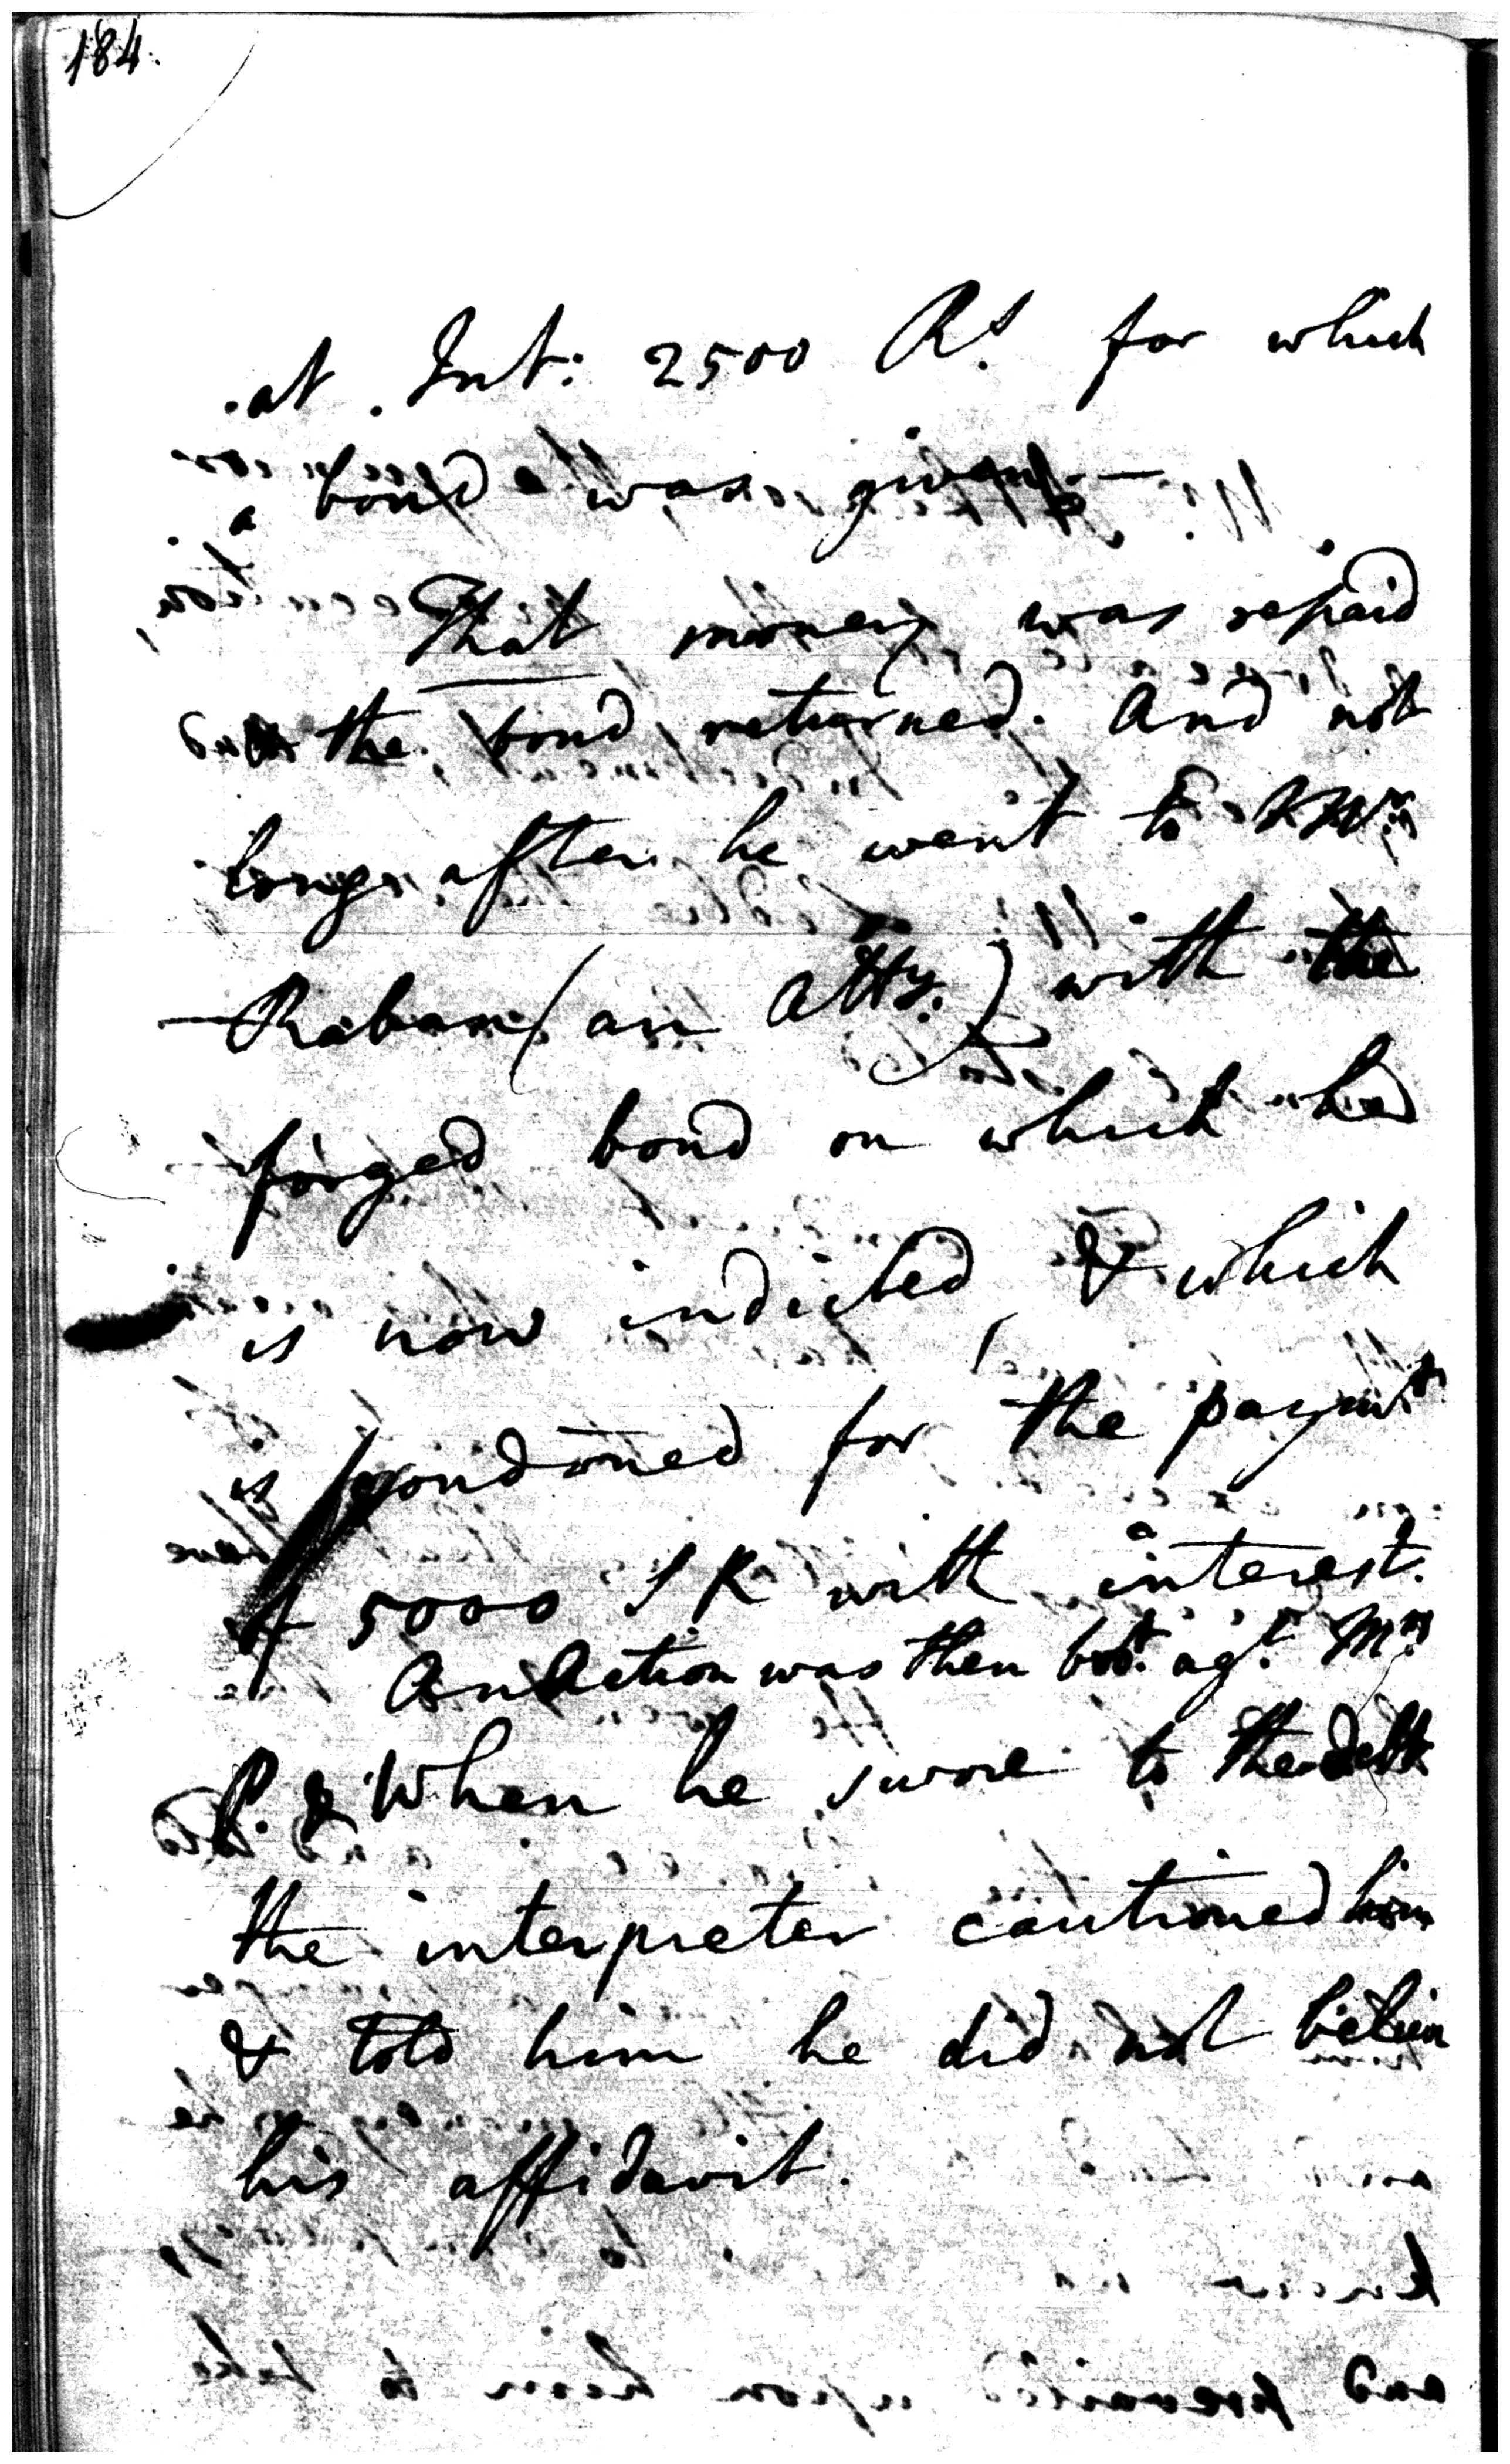 184.
at Int: 2500 Rs. for which
a bond was given —
That money was repaid
& the bond returned. And not
long after he went to Wm.
Raban (an Atty.) with the
forged bond on which he
is now indicted, & which
is conditioned for the paymt.
of 5000 S R with interest.
An Action was then brot. agt. Mrs
P. & When he swore to the debt
the interpreter cautioned him
& told him he did not believe
his affidavit.